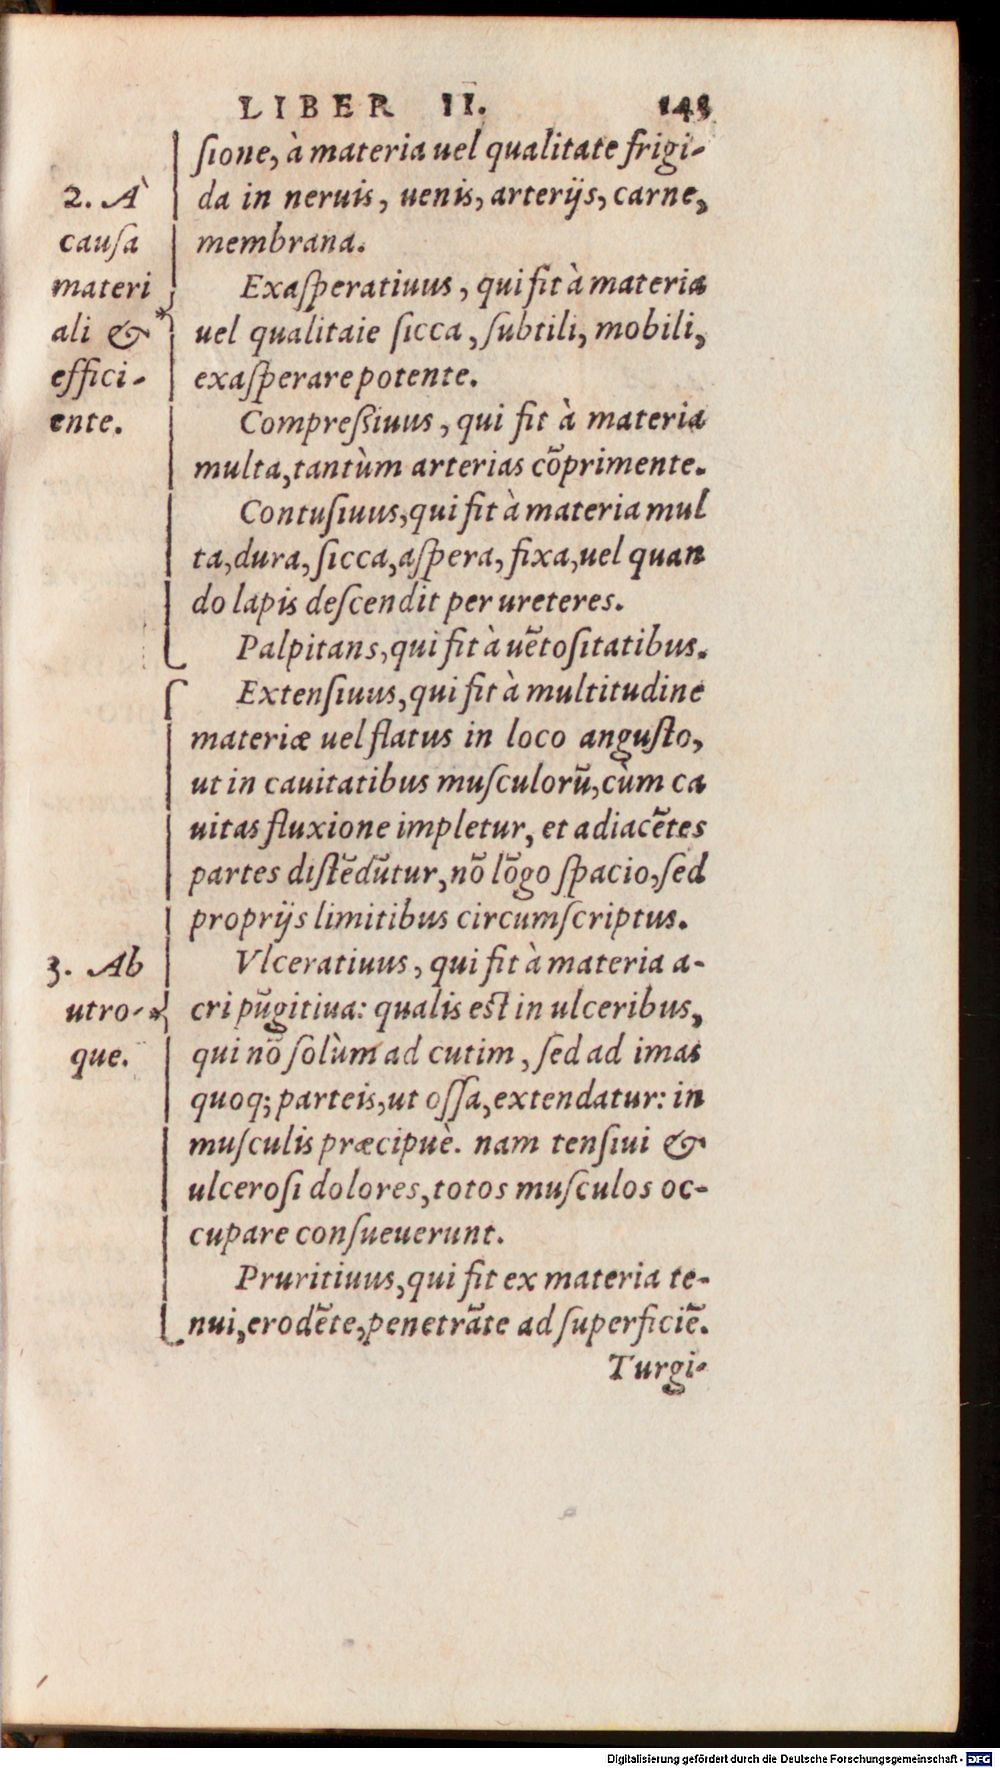 LIBER II. 143
ſione, à materia uel qualitate frigi-
da in neruis, uenis, arterijs, carne,
membrana.
2. À
cauſa
materi
ali &
effici-
ente.
Exaſperatiuus, qui fit à materia
uel qualitaie ſicca, ſubtili, mobili,
exaſperare potente.
Compreſſiuus, qui fit à materia
multa, tantùm arterias cõprimente.
Contuſiuus, qui fit à materia mul
ta, dura, ſicca, aſpera, fixa, uel quan
do lapis deſcendit per ureteres.
Palpitans, qui fit à uẽtoſitatibus.
Extenſiuus, qui fit à multitudine
materiæ uel flatus in loco anguſto,
ut in cauitatibus muſculorũ, cùm ca
uitas fluxione impletur, et adiacẽtes
partes diſtẽdũtur, nõ lõgo ſpacio, ſed
proprijs limitibus circumſcriptus.
3. Ab
utro-
que.
Vlceratiuus, qui fit à materia a-
cri pũgitiua: qualis eſt in ulceribus,
qui nõ ſolùm ad cutim, ſed ad imas
quoq; parteis, ut oſſa, extendatur: in
muſculis præcipuè. nam tenſiui &
ulceroſi dolores, totos muſculos oc-
cupare conſueuerunt.
Pruritiuus, qui fit ex materia te-
nui, erodẽte, penetrãte ad ſuperficiẽ.
Turgi-
Digitalisierung gefördert durch die Deutsche Forschungsgemeinschaft - DFG